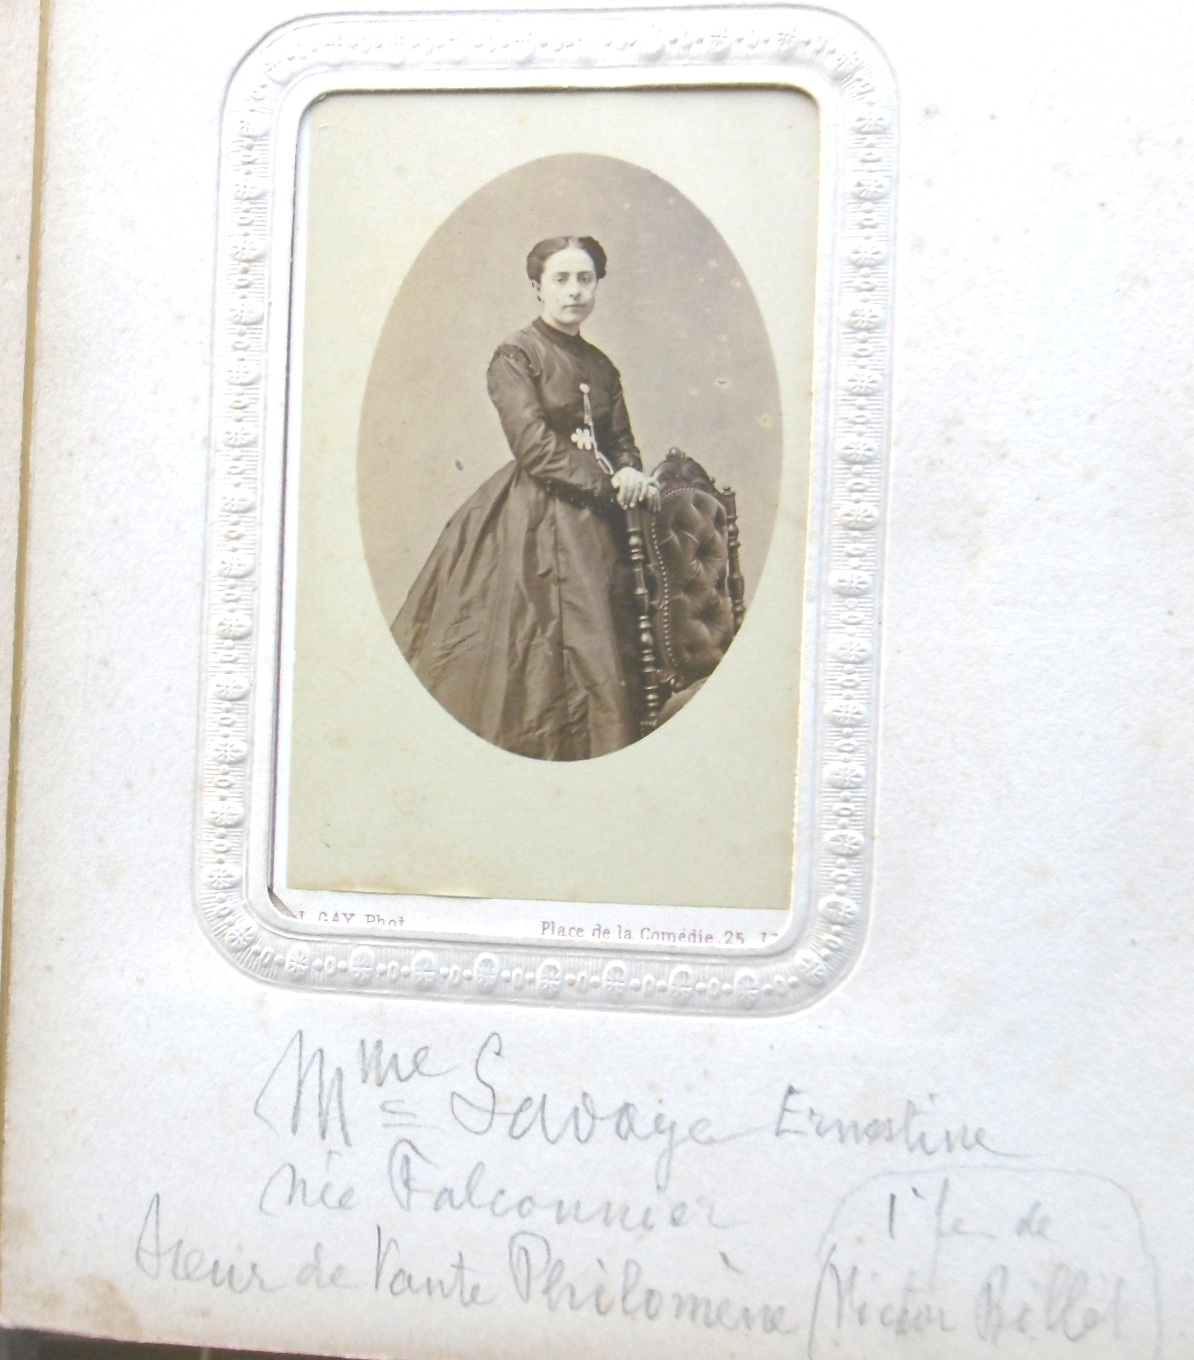 J. GAY Phot.
Place de la Comédie. 25
Mme Savoye Ernestine
née Falconnier
Sœur de Tante Philomène
1è fe de
Victor Billet